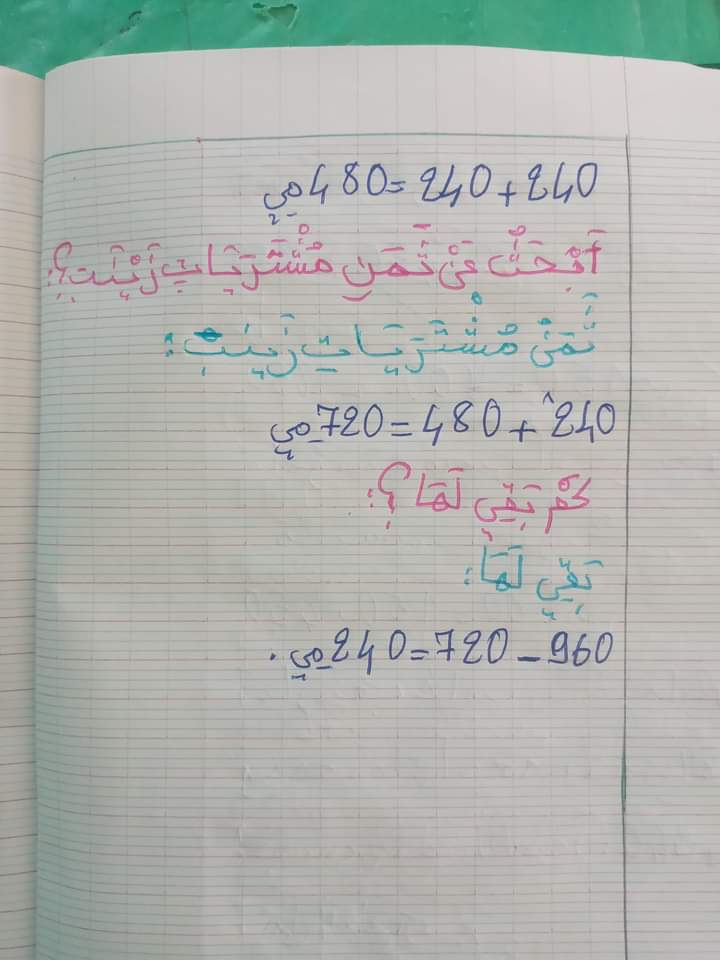 240 + 240 = 480 مي
أَبْحَثُ عَنْ ثَمَنِ مُشْتَرَيَاتِ زَيْنَبِ؟:
ثَمَنُ مُشْتَرَيَاتِ زَيْنَبِ:
240 + 480 = 720 مي
كَمْ بَقِيَ لَهَا؟:
بَقِيَ لَهَا:
960 - 720 = 240 مي.